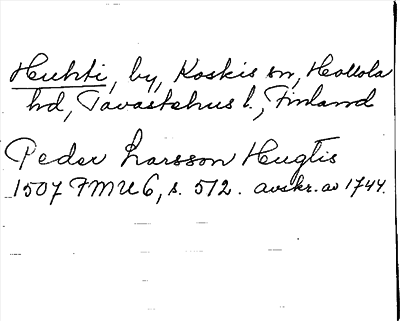 Huhti, by, Koskis sn, Hollola
hd, Tavastehus l., Finland
Peder Larsson Hugtis
1507 FMU 6, s. 512. avskr. av 1744.